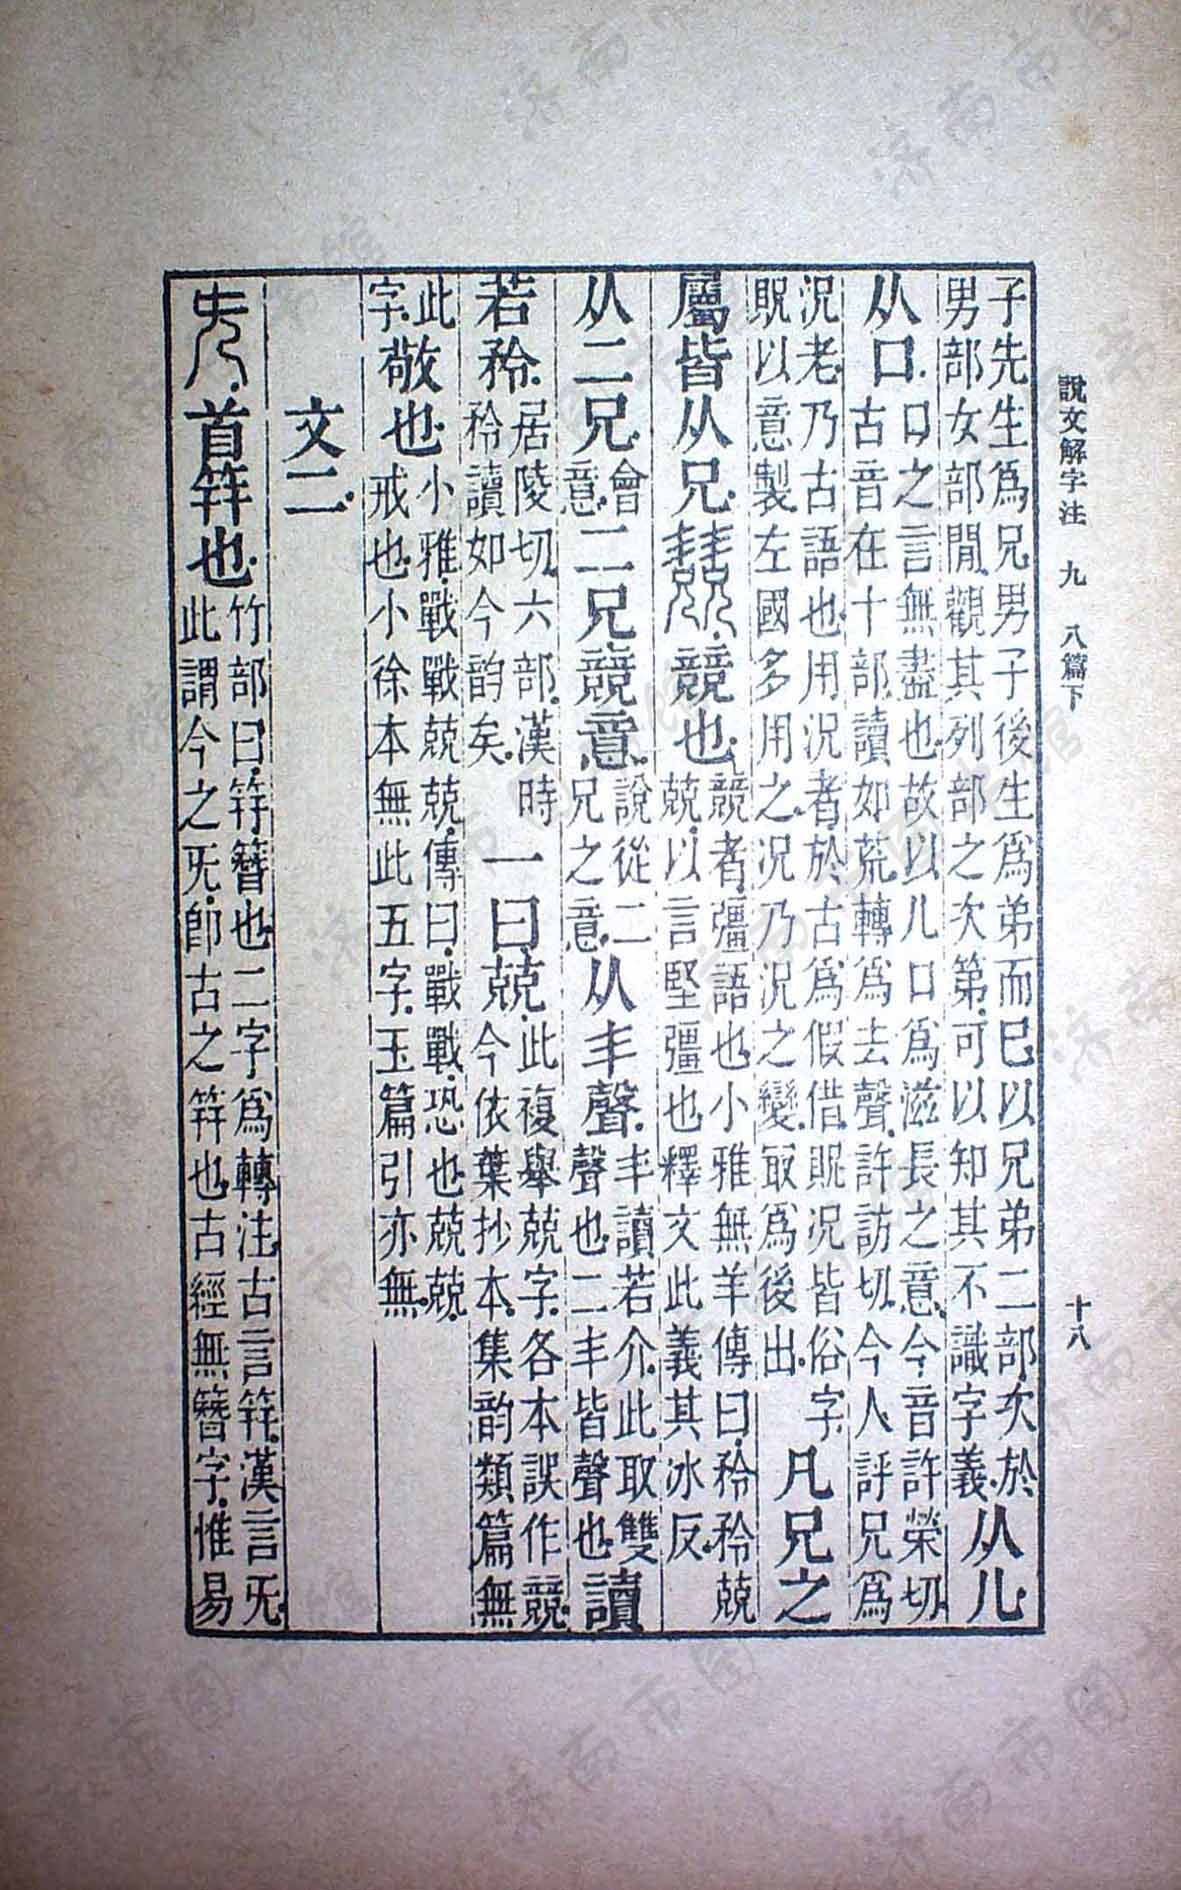 說文解字注　九　八篇下　十八
子先生爲兄男子後生爲弟而已以兄弟二部次於男部女部閒觀其列部之次第可以知其不識字義.从儿
从口.口之言無盡也故以儿口爲滋長之意今音許榮切古音在十部讀如荒轉爲去聲許訪切今人評兄爲
況老.乃古語也用況者於古爲假借.貺況皆俗字.貺以意製左國多用之况乃況之變.㝡爲後出.凡兄之
屬皆从兄.兢.競也.競者.彊語也小雅無羊傳曰.矜矜兢兢.以言堅彊也釋文此義其冰反.
从二兄.會意.二兄.競意.說從二兄之意.从丯聲.丯讀若介.此取雙聲也二丯皆聲也.讀
若矜.居陵切.六部.漢時矜讀如今韵矣.一曰兢.此複舉兢字.各本誤作競.今依葉抄本.集韵類篇無
此字.敬也.小雅.戰戰兢兢.傳曰.戰戰.恐也兢兢.戒也小徐本無此五字.玉篇引亦無.
文二
兂.首筓也.竹部曰.筓簪也二字爲轉注古言筓.漢言旡.此謂今之旡.卽古之筓也古經無簪字.惟易
济南市图书馆